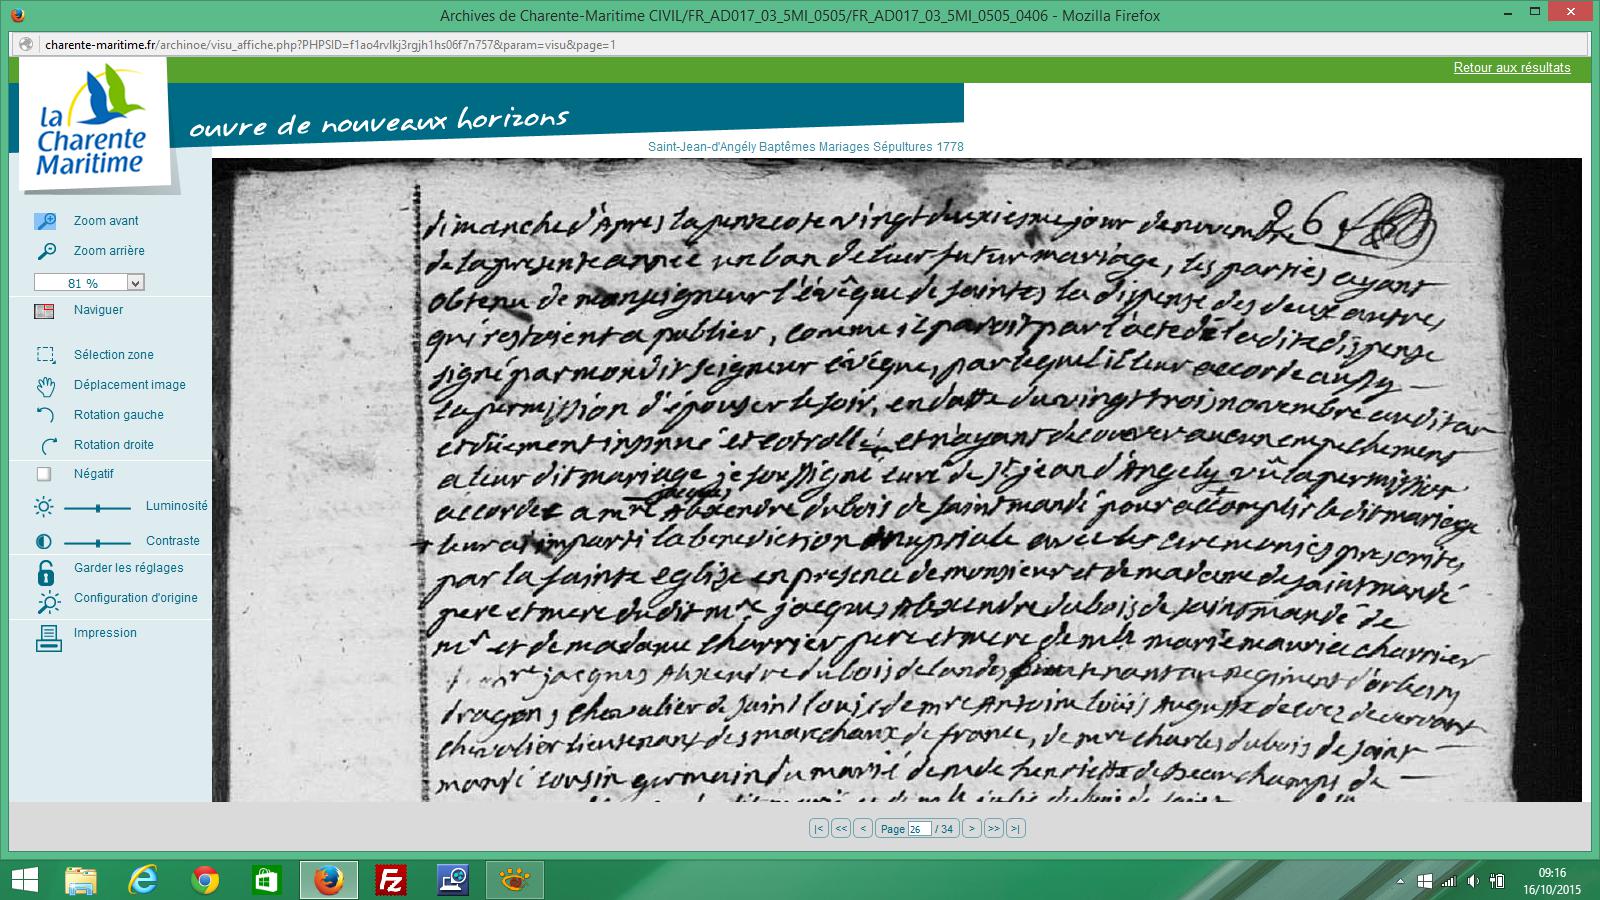 Archives de Charente-Maritime CIVIL/FR_AD017_03_5MI_0505/FR_AD017_03_5MI_0505_0406 - Mozilla Firefox
charente-maritime.fr/archinoe/visu_affiche.php?PHPSID=f1ao4rvlkj3rgjh1hs06f7n757&param=visu&page=1
Retour aux résultats
la Charente Maritime
ouvre de nouveaux horizons
Saint-Jean-d'Angély Baptêmes Mariages Sépultures 1778
Zoom avant
Zoom arrière
81 %
Naviguer
Sélection zone
Déplacement image
Rotation gauche
Rotation droite
Négatif
Luminosité
Contraste
Garder les réglages
Configuration d'origine
Impression
26
dimanche d'Apres la pentecote vingt deuxiesme jour de novembre
de la presente année un ban de leur futur mariage, les parties ayant
obtenu de monseigneur l'évêque de saintes la dispense des deux autres
qui restoient a publier, comme il paroit par l'acte de la dite dispense
signé par mondit seigneur évêque, par lequel il leur accorde aussy
la permission d'épouser le soir, en datte du vingt trois novembre audit an
et düement insinué et cotrollé, et n'ayant decouvert aucun empechement
a leur dit mariage je soussigné curé de st jean d'Angely vû la permission
accordée a mre jacques Alexendre dubois de saint mandé pour accomplir le dit mariage
leur ai imparti la benediction nuptiale avec les ceremonies prescrites
par la sainte eglise en presence de monsieur et de madame de saint mandé
pere et mere du dit mre jacques Alexendre dubois de saint mandé de
mr et de madame charrier pere et mere de mlle marie maurice charrier
mre jacques Alexendre dubois de landes lieutenant au Regiment d'orleans
dragons chevalier de saint louis de mre Antoine louis Auguste
chevalier lieutenant des marechaux de france, de mre charles dubois de saint
mandé cousin germain du marié de mde henriette de Beauchamps de
|< << < Page 26 / 34 > >> >|
09:16
16/10/2015